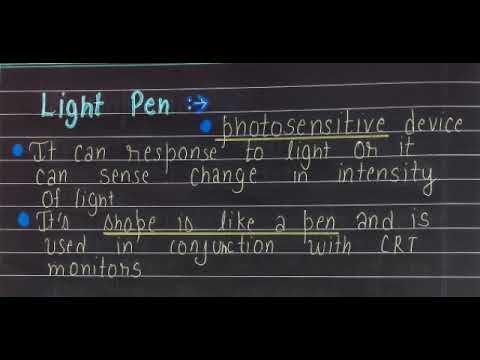 Light Pen :→
• photosensitive device
• It can response to light or it
can sense change in intensity
of light
• It's shape is like a pen and is
used in conjunction with CRT
monitors